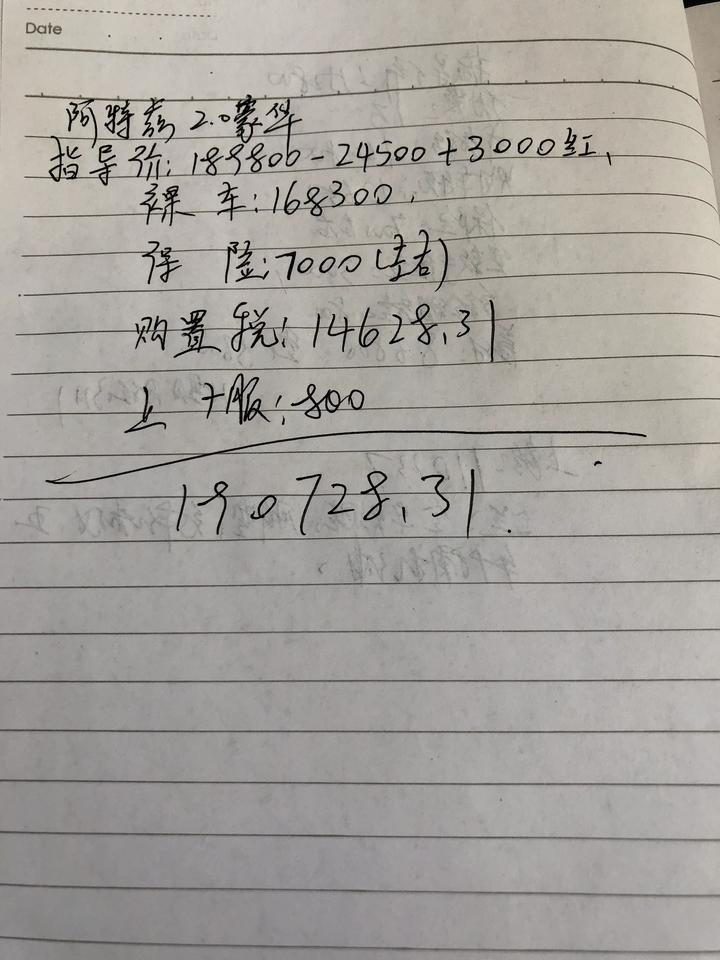 Date
阿特兹 2.0豪华
指导价: 189800-24500+3000红,
裸车: 168300.
保险: 7000(左右)
购置税: 14628.31
上户服: 800
190728.31.